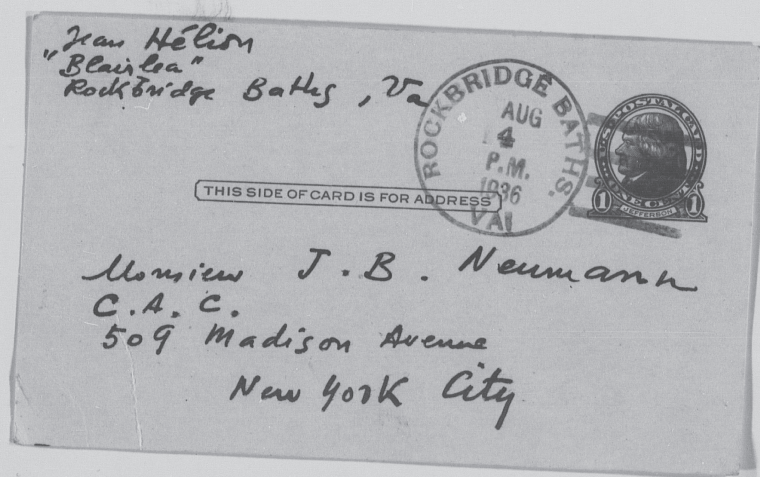 Jean Hélion
"Blairlea"
Rockbridge Baths, Va
ROCKBRIDGE BATHS.
AUG
4
P.M.
1936
VA
U.S. POSTAL CARD
ONE CENT
1 JEFFERSON 1
THIS SIDE OF CARD IS FOR ADDRESS
Monsieur J. B. Neumann
C.A.C.
509 Madison Avenue
New York City